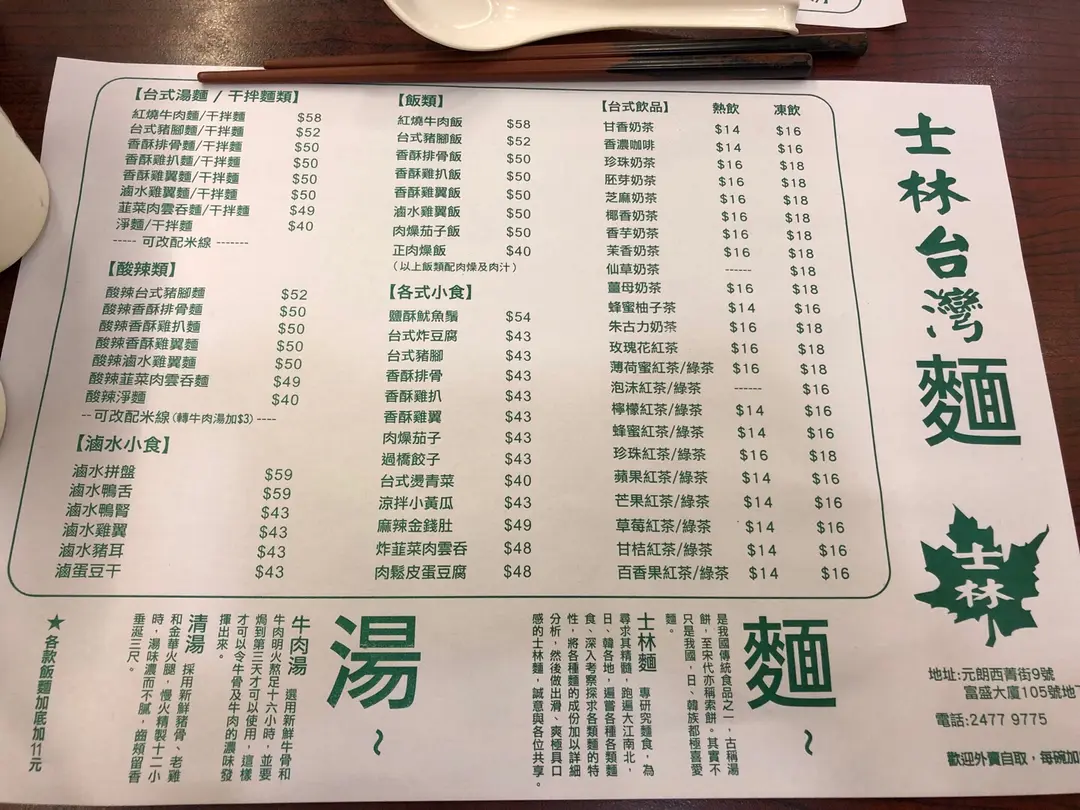 【台式湯麵 / 干拌麵類】
紅燒牛肉麵/干拌麵 $58
台式豬腳麵/干拌麵 $52
香酥排骨麵/干拌麵 $50
香酥雞扒麵/干拌麵 $50
香酥雞翼麵/干拌麵 $50
滷水雞翼麵/干拌麵 $50
韮菜肉雲吞麵/干拌麵 $49
淨麵/干拌麵 $40
----- 可改配米線 -------
【酸辣類】
酸辣台式豬腳麵 $52
酸辣香酥排骨麵 $50
酸辣香酥雞扒麵 $50
酸辣香酥雞翼麵 $50
酸辣滷水雞翼麵 $50
酸辣韮菜肉雲吞麵 $49
酸辣淨麵 $40
-- 可改配米線(轉牛肉湯加$3) ----
【滷水小食】
滷水拼盤 $59
滷水鴨舌 $59
滷水鴨腎 $43
滷水雞翼 $43
滷水豬耳 $43
滷蛋豆干 $43
【飯類】
紅燒牛肉飯 $58
台式豬腳飯 $52
香酥排骨飯 $50
香酥雞扒飯 $50
香酥雞翼飯 $50
滷水雞翼飯 $50
肉燥茄子飯 $50
正肉燥飯 $40
(以上飯類配肉燥及肉汁)
【各式小食】
鹽酥魷魚鬚 $54
台式炸豆腐 $43
台式豬腳 $43
香酥排骨 $43
香酥雞扒 $43
香酥雞翼 $43
肉燥茄子 $43
過橋餃子 $43
台式燙青菜 $40
涼拌小黃瓜 $43
麻辣金錢肚 $49
炸韮菜肉雲吞 $48
肉鬆皮蛋豆腐 $48
【台式飲品】 熱飲 凍飲
甘香奶茶 $14 $16
香濃咖啡 $14 $16
珍珠奶茶 $16 $18
胚芽奶茶 $16 $18
芝麻奶茶 $16 $18
椰香奶茶 $16 $18
香芋奶茶 $16 $18
茉香奶茶 $16 $18
仙草奶茶 ------ $18
薑母奶茶 $16 $18
蜂蜜柚子茶 $14 $16
朱古力奶茶 $16 $18
玫瑰花紅茶 $16 $18
薄荷蜜紅茶/綠茶 $16 $18
泡沫紅茶/綠茶 ------ $16
檸檬紅茶/綠茶 $14 $16
蜂蜜紅茶/綠茶 $14 $16
珍珠紅茶/綠茶 $16 $18
蘋果紅茶/綠茶 $14 $16
芒果紅茶/綠茶 $14 $16
草莓紅茶/綠茶 $14 $16
甘桔紅茶/綠茶 $14 $16
百香果紅茶/綠茶 $14 $16
士林台灣麵
士林
地址:元朗西菁街9號
富盛大廈105號地
電話:2477 9775
歡迎外賣自取，每碗加
麵~
是我國傳統食品之一，古稱湯
餅，至宋代亦稱索餅。其實不
只是我國，日、韓族都極喜愛
麵。
士林麵 專研究麵食，為
尋求其精髓，跑遍大江南北，
日、韓各地，遍嘗各種各類麵
食、深入考察探求各類麵的特
性，將各種麵的成份加以詳細
分析，然後做出滑、爽極具口
感的士林麵，誠意與各位共享。
湯~
牛肉湯 選用新鮮牛骨和
牛肉明火熬足十六小時，並要
焗到第三天才可以使用，這樣
才可以令牛骨及牛肉的濃味發
揮出來。
清湯 採用新鮮豬骨、老雞
和金華火腿，慢火精製十二小
時，湯味濃而不膩，齒頰留香
垂涎三尺。
★各款飯麵加底加11元